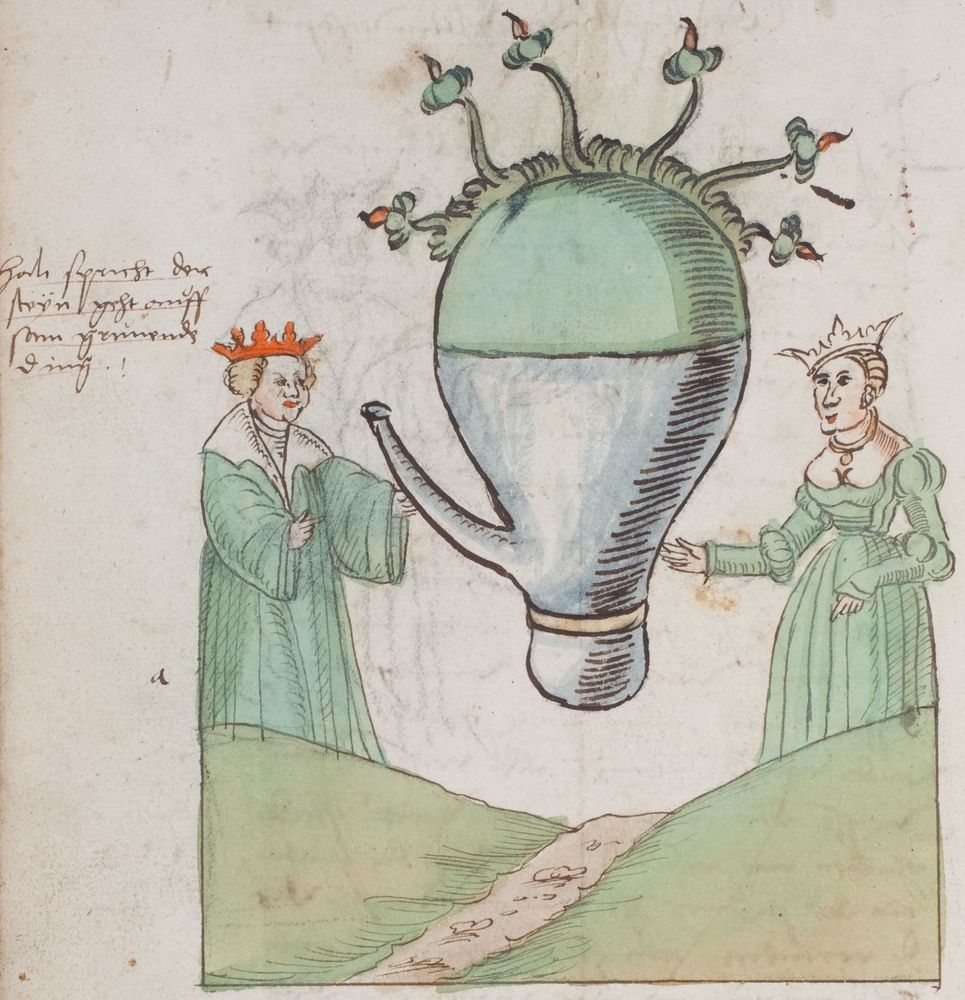 Hali spricht der
steyn geht auff
sam grunende
ding . !
a